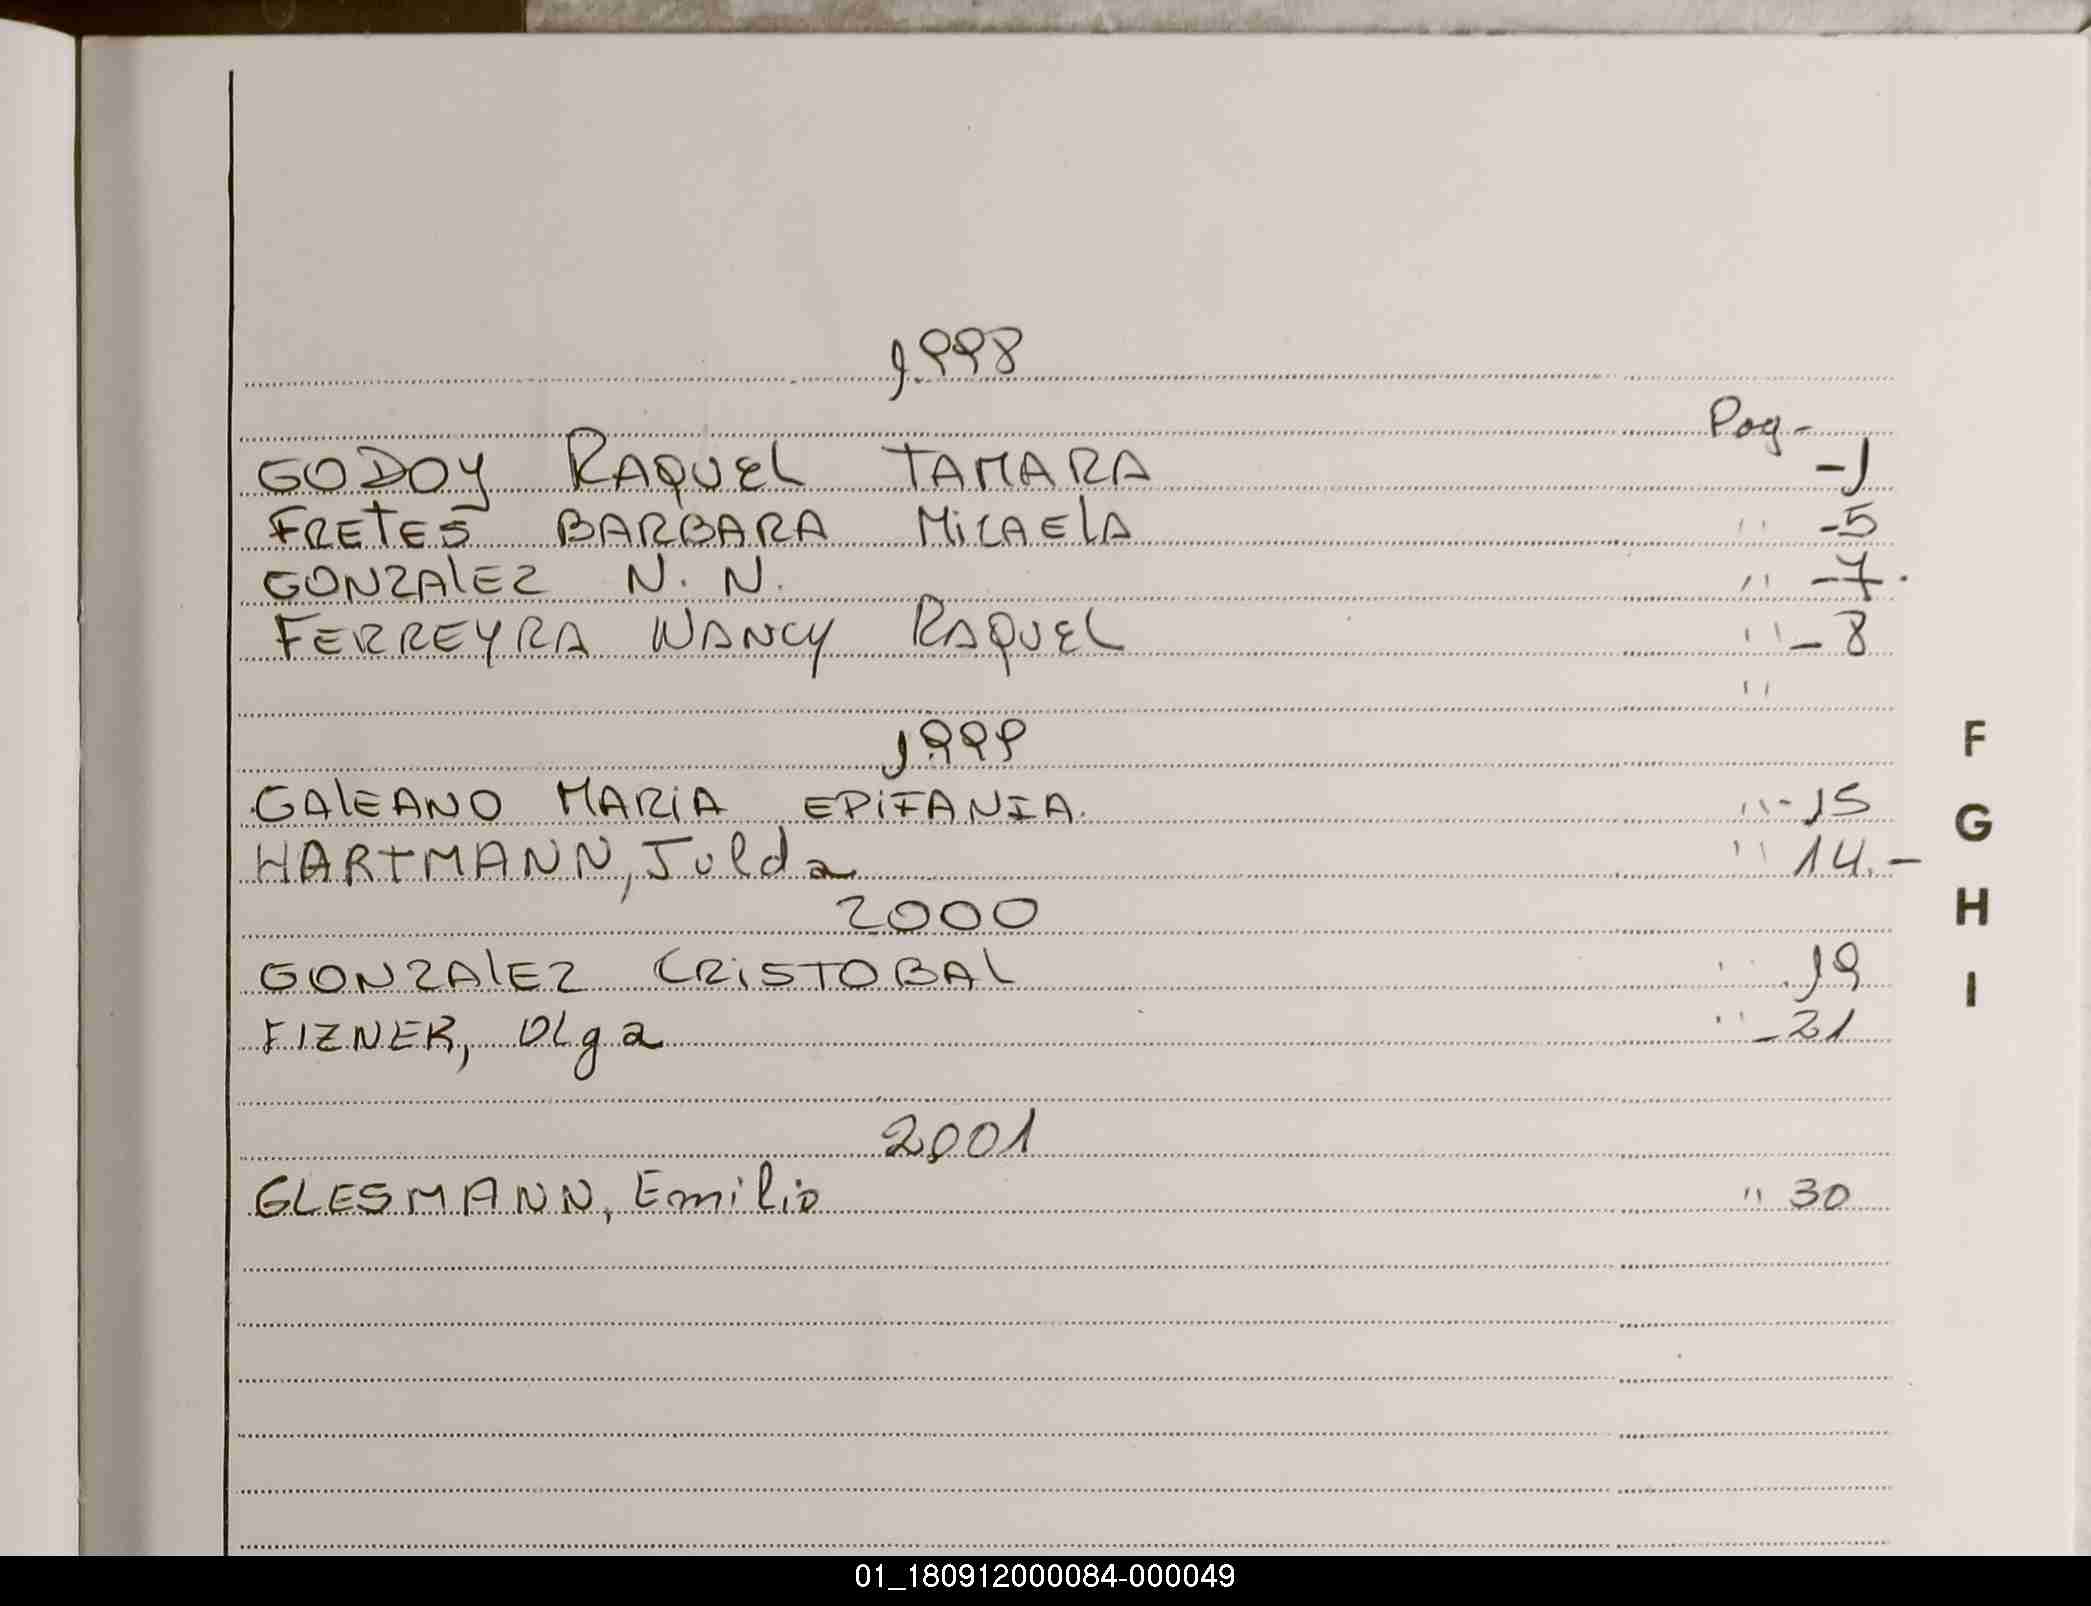 1998
Pag-
GODOY RAQUEL TAMARA -1
FRETES BARBARA MICAELA " -5
GONZALEZ N. N. " -7.
FERREYRA NANCY RAQUEL " - 8
"
1999
GALEANO MARIA EPIFANIA. " - 15
HARTMANN, Julda " 14.-
2000
GONZALEZ CRISTOBAL " 19
FIZNER, Olga " - 21
2001
GLESMANN, Emilio " 30
F
G
H
I
01_180912000084-000049